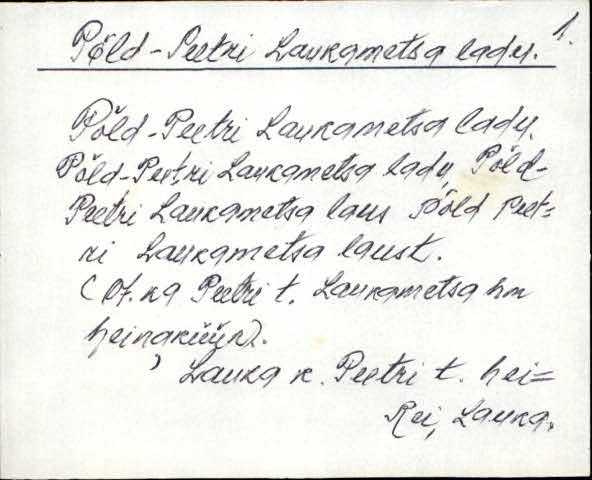 1.
Põld-Peetri Laukametsa ladu.
Põld-Peetri Laukametsa ladu.
Põld-Peetri Laukametsa ladu, Põld-
Peetri Laukametsa laus Põld Peet=
ri Laukametsa laust.
(Of. ka Peetri t. Laukametsa hm
heinaküün).
Lauka k. Peetri t. hei=
Rei, Lauka.